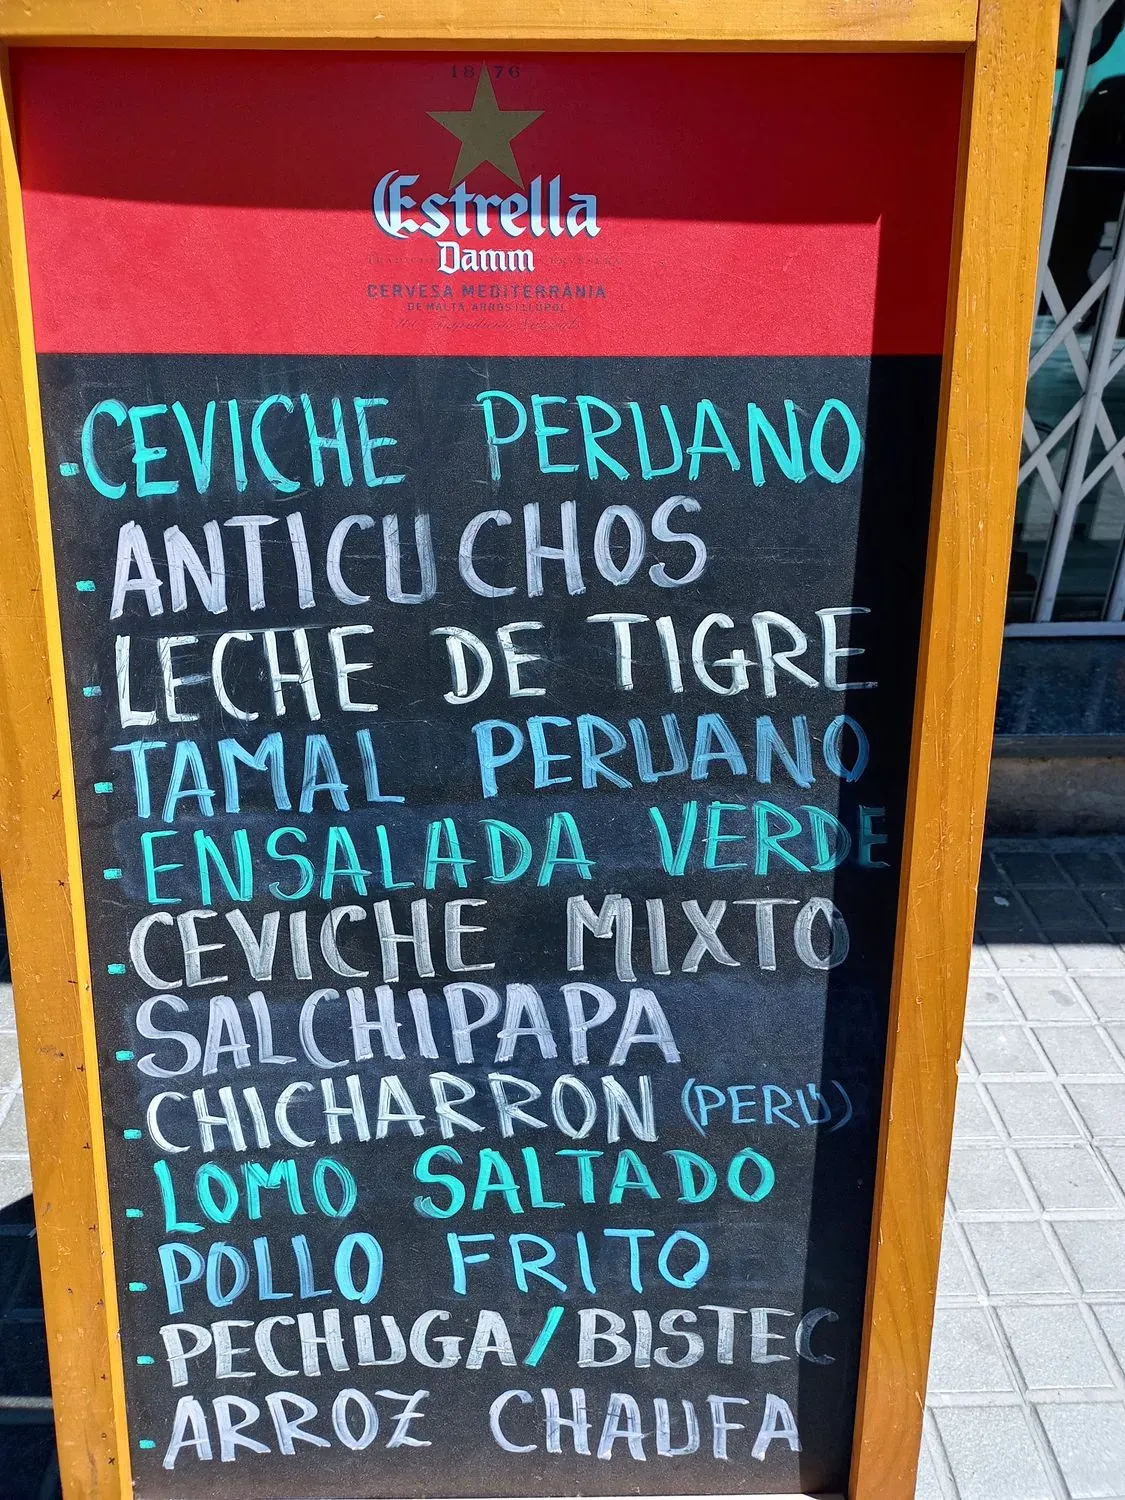 1876
Estrella
Damm
CERVESA MEDITERRÀNIA
DE MALTA, ARRÒS I LLÚPOL
-CEVICHE PERUANO
-ANTICUCHOS
-LECHE DE TIGRE
-TAMAL PERUANO
-ENSALADA VERDE
-CEVICHE MIXTO
-SALCHIPAPA
-CHICHARRON (PERÚ)
-LOMO SALTADO
-POLLO FRITO
-PECHUGA/BISTEC
-ARROZ CHAUFA